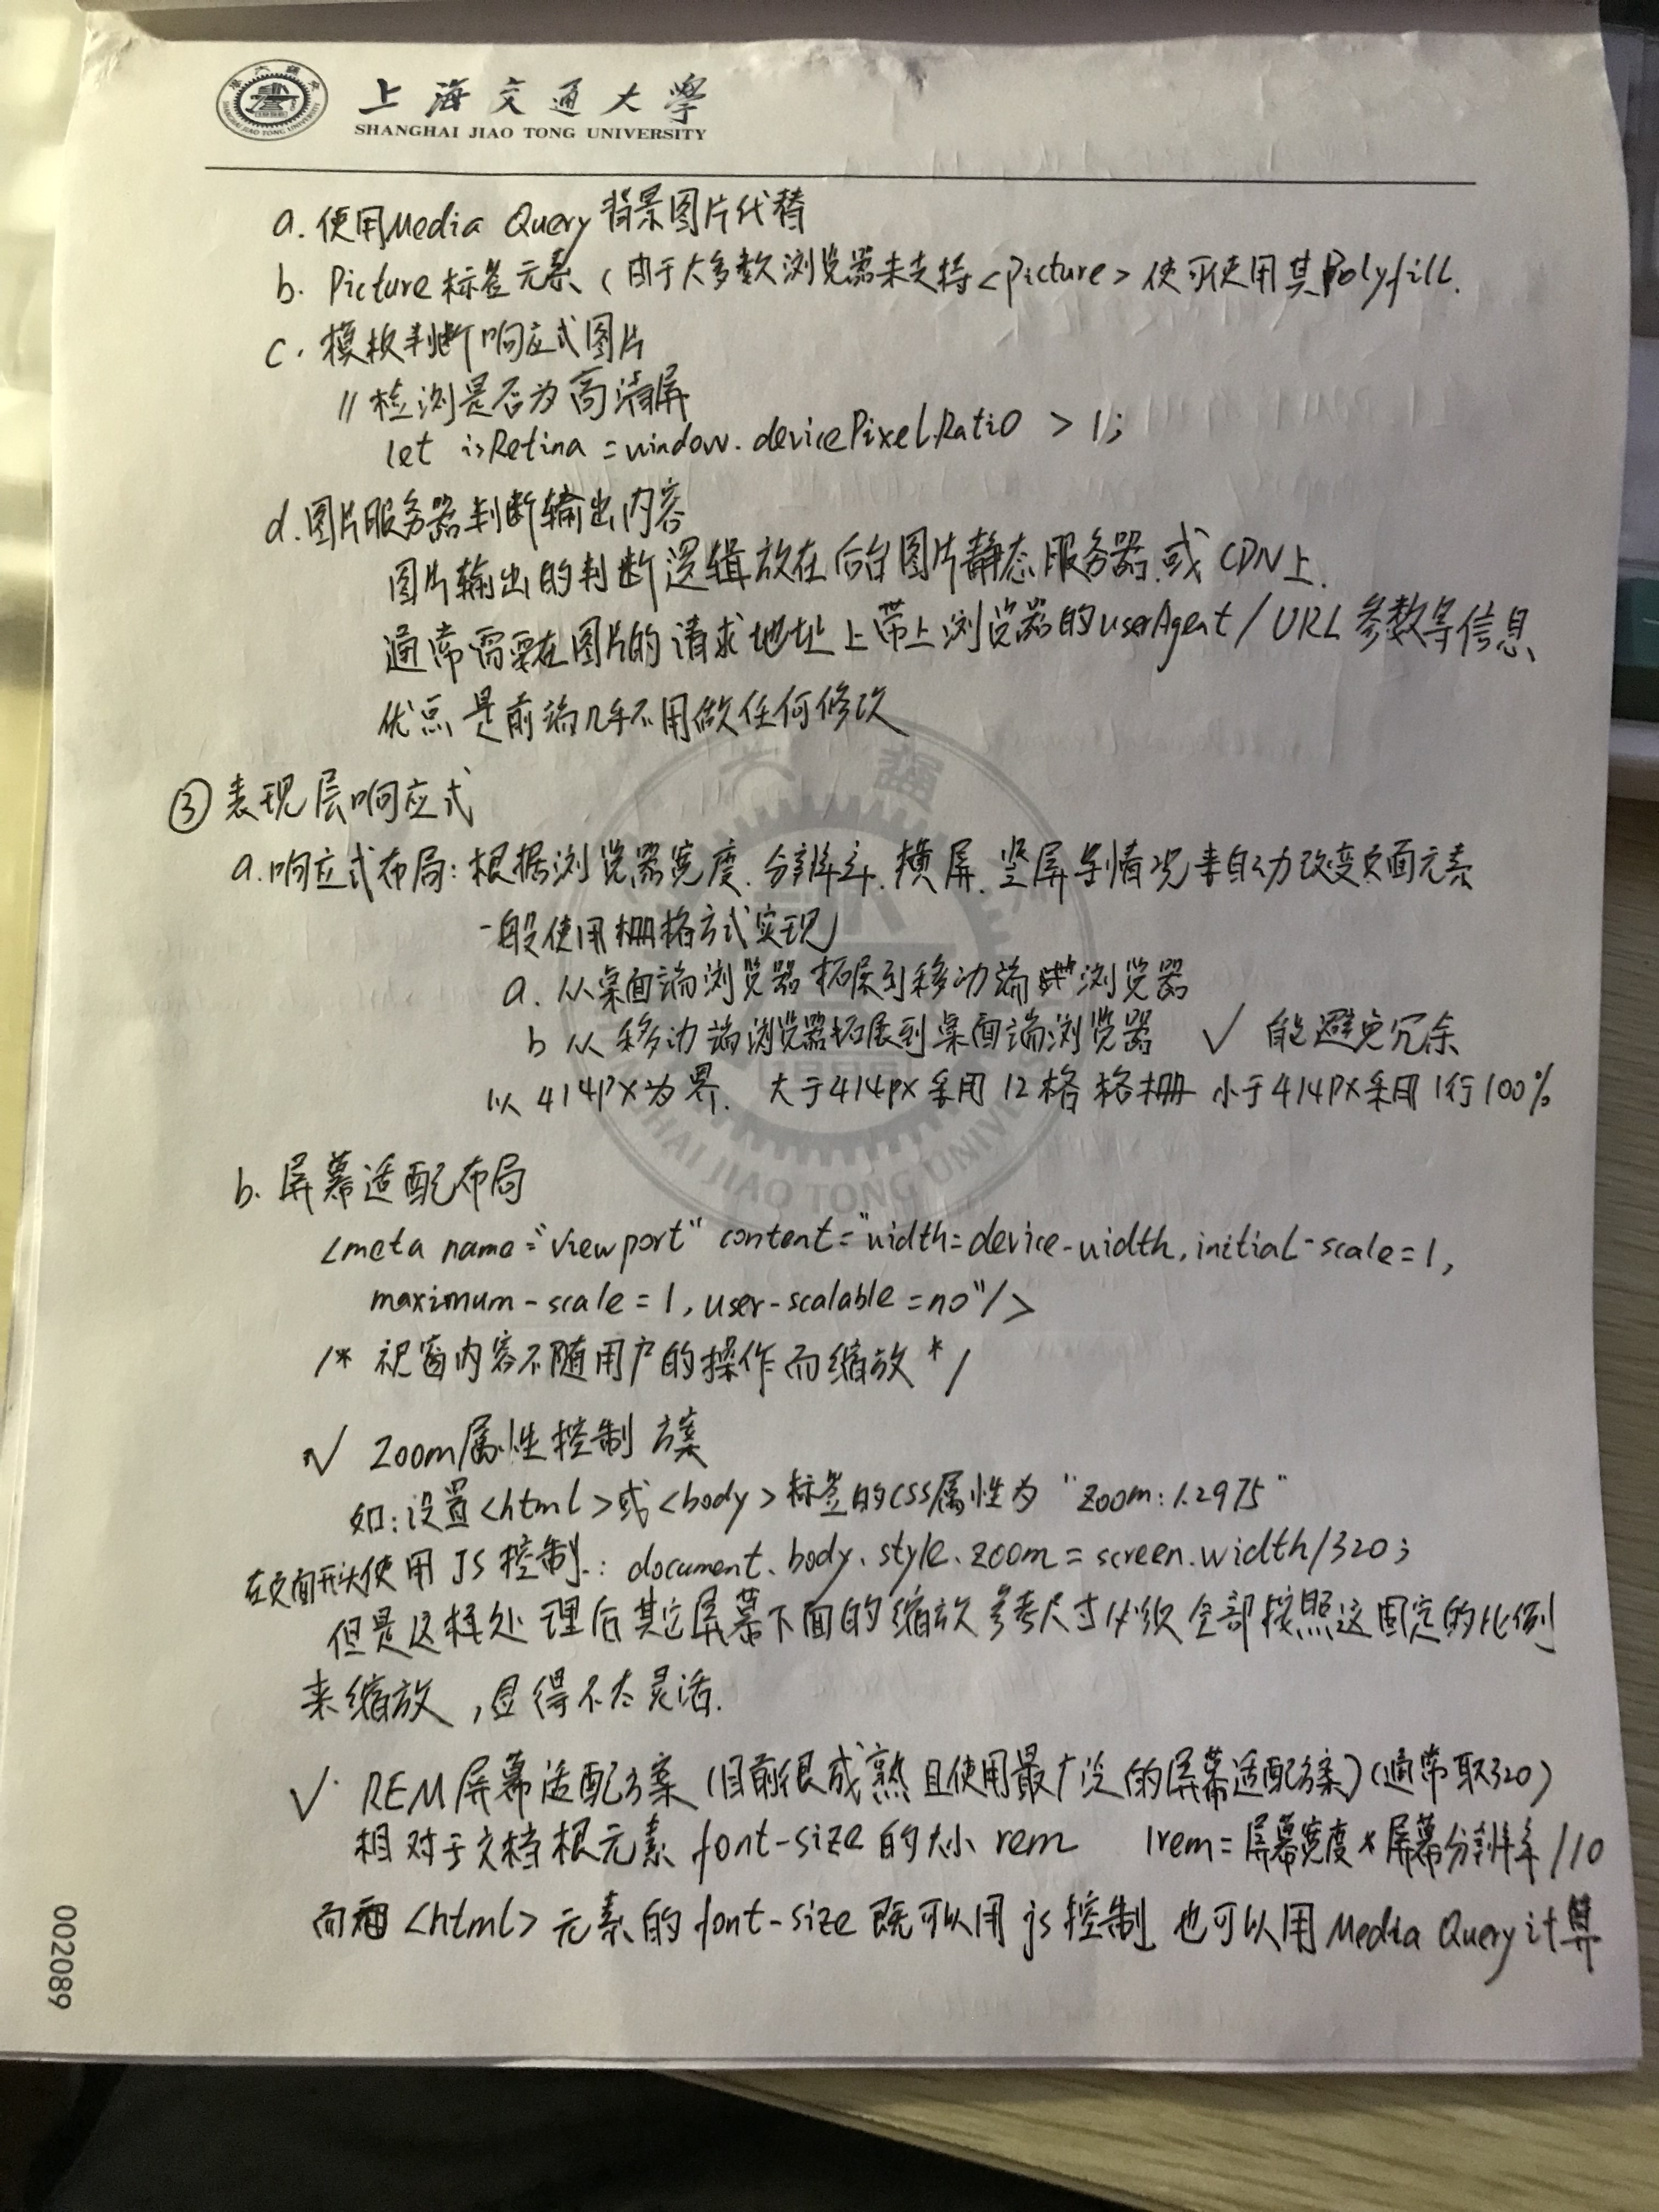 上海交通大學
SHANGHAI JIAO TONG UNIVERSITY
a. 使用Media Query 背景图片代替
b. Picture标签元素 (由于大多数浏览器未支持<picture> 使可使用其Polyfill.
c. 模板判断响应式图片
// 检测是否为高清屏
let isRetina = window.devicePixelRatio > 1;
d. 图片服务器判断输出内容
图片输出的判断逻辑放在后台图片静态服务器.或CDN上.
通常需要在图片的请求地址上带上浏览器的userAgent/URL参数等信息
优点是前端几乎不用做任何修改
③ 表现层响应式
a. 响应式布局: 根据浏览器宽度、分辨率、横屏、竖屏等情况来自动改变页面元素
一般使用栅格方式实现
a. 从桌面端浏览器拓展到移动端浏览器
b 从移动端浏览器拓展到桌面端浏览器 ✓ 能避免冗余
以414px为界. 大于414px采用12格格栅 小于414px采用1行100%
b. 屏幕适配布局
<meta name="viewport" content="width=device-width, initial-scale=1,
maximum-scale=1, user-scalable=no"/>
/* 视窗内容不随用户的操作而缩放 */
✓ Zoom属性控制方案
如: 设置<html>或<body>标签的CSS属性为 "zoom: 1.2975"
在页面开头使用JS控制.: document.body.style.zoom = screen.width/320;
但是这样处理后其它屏幕下面的缩放参考尺寸必须全部按照这固定的比例
来缩放, 显得不太灵活.
✓ REM屏幕适配方案 (目前很成熟且使用最广泛的屏幕适配方案) (通常取320)
相对于文档根元素font-size的大小rem 1rem = 屏幕宽度 * 屏幕分辨率/10
而<html>元素的font-size既可以用js控制 也可以用Media Query计算
002089